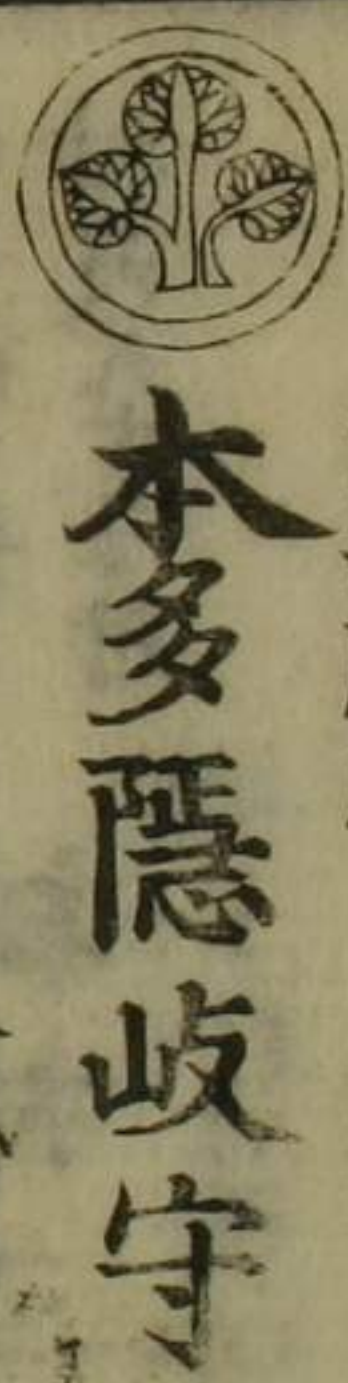 本多隠岐守